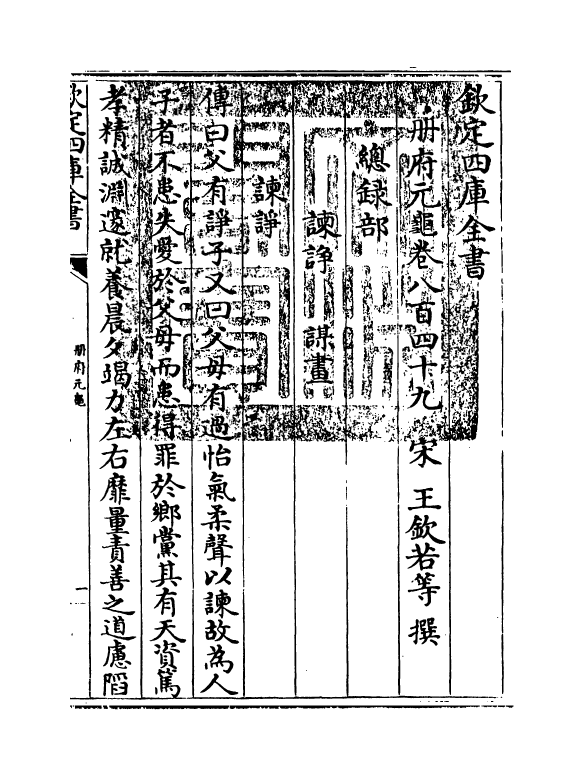 欽定四庫全書
册府元龜卷八百四十九 宋 王欽若等 撰
總録部
諫諍 謀畫
諫諍
傳曰父有諍子又曰父母有過怡氣柔聲以諫故為人
子者不患失愛於父母而患得罪於鄉黨其有天資篤
孝精誠淵邃就養晨夕竭力左右靡量責善之道慮陷
欽定四庫全書
册府元龜
一